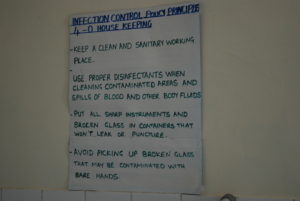 INFECTION CONTROL POLICY PRINCIPLES
4-0 HOUSE KEEPING
- KEEP A CLEAN AND SANITARY WORKING
PLACE.
-
USE PROPER DISINFECTANTS WHEN
CLEANING CONTAMINATED AREAS AND
SPILLS OF BLOOD AND OTHER BODY FLUIDS
- PUT ALL SHARP INSTRUMENTS AND
BROKEN GLASS IN CONTAINERS THAT
WON'T LEAK OR PUNCTURE.
- AVOID PICKING UP BROKEN GLASS
THAT MAY BE CONTAMINATED WITH
BARE HANDS.